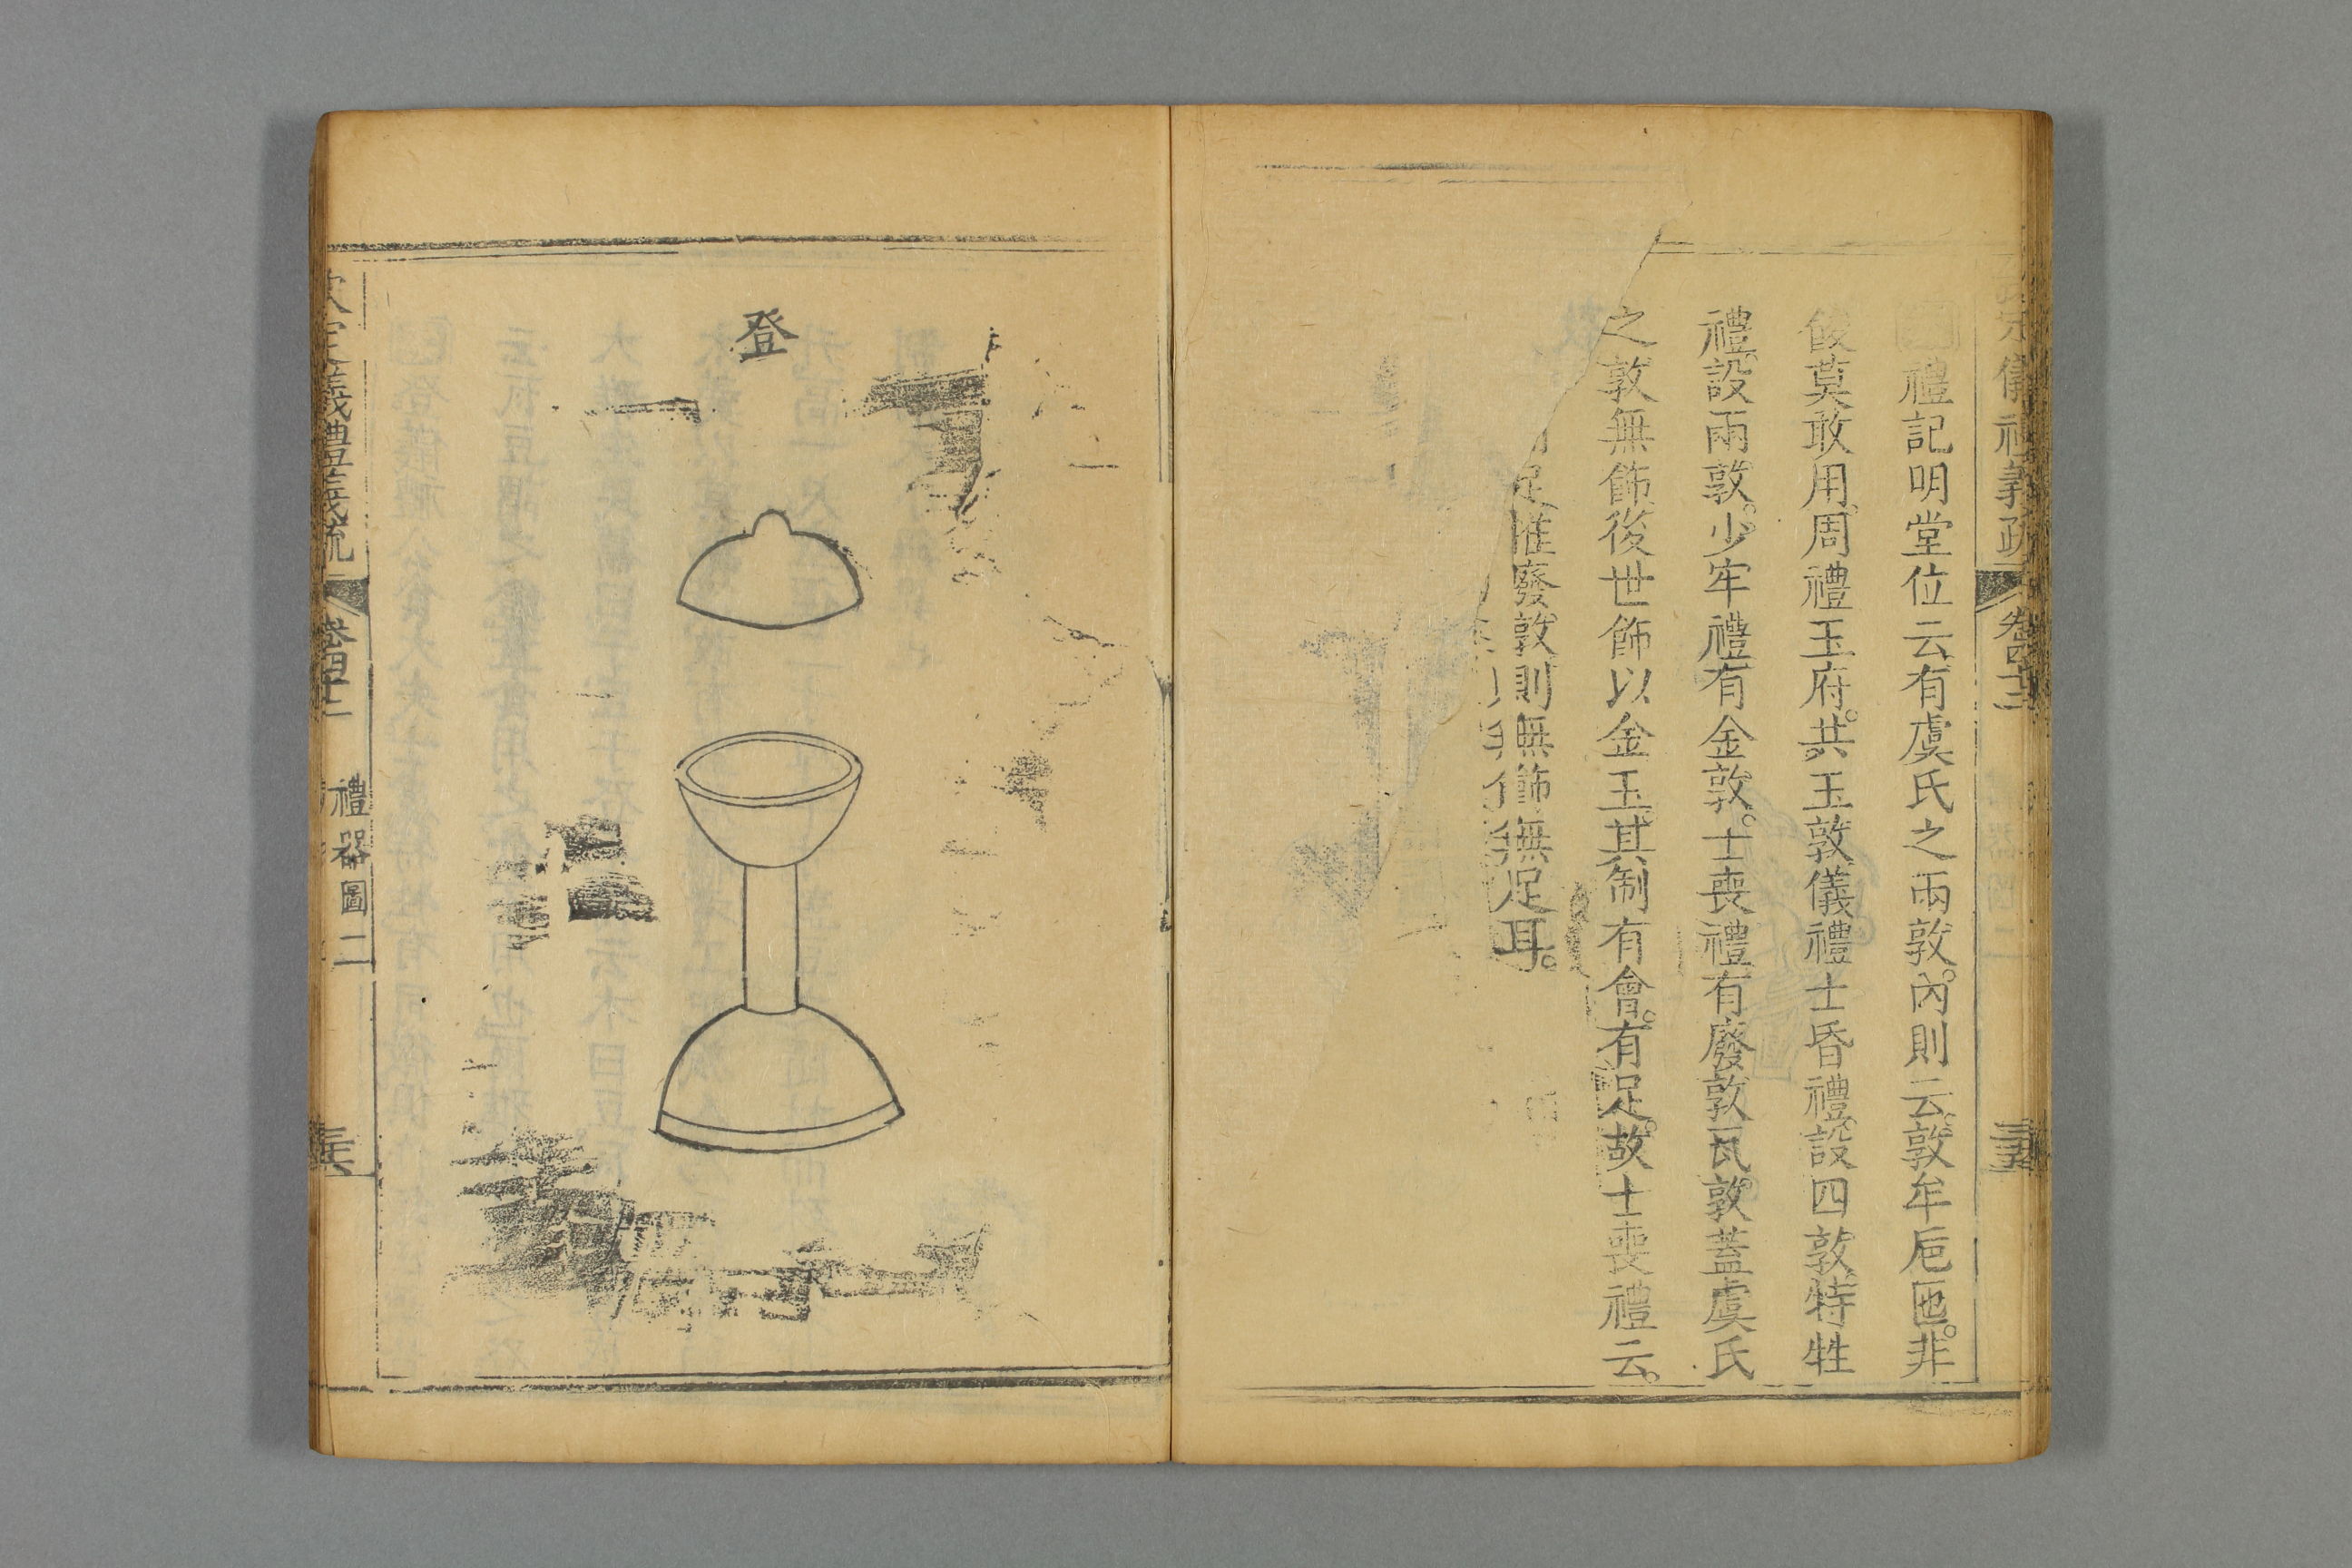 禮記明堂位云有虞氏之兩敦。內則云敦牟卮匜。非
餕莫敢用。周禮玉府。共玉敦儀禮士昏禮。設四敦特牲
禮。設兩敦。少牢禮有金敦。士喪禮有廢敦瓦敦蓋虞氏
之敦無飾後世飾以金玉。其制有會。有足。故士喪禮云。
足惟廢敦則無飾無足耳。
卷四十二
登
欽定儀禮義疏
卷四十二
禮器圖二